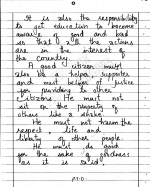 It is also the responsibility
to get education to become
aware of good and bad
so that all the actions
are in the interest of
the country.
A good citizen must
also be a helper, supporter
and must helper of justice
for providing to other
citizens. He must not
sit on the property of
others like a snake.
He must not harm the
respect, life and
liberty of other people.
He must do good
for the sake of goodness
as it is said,
P.T.O